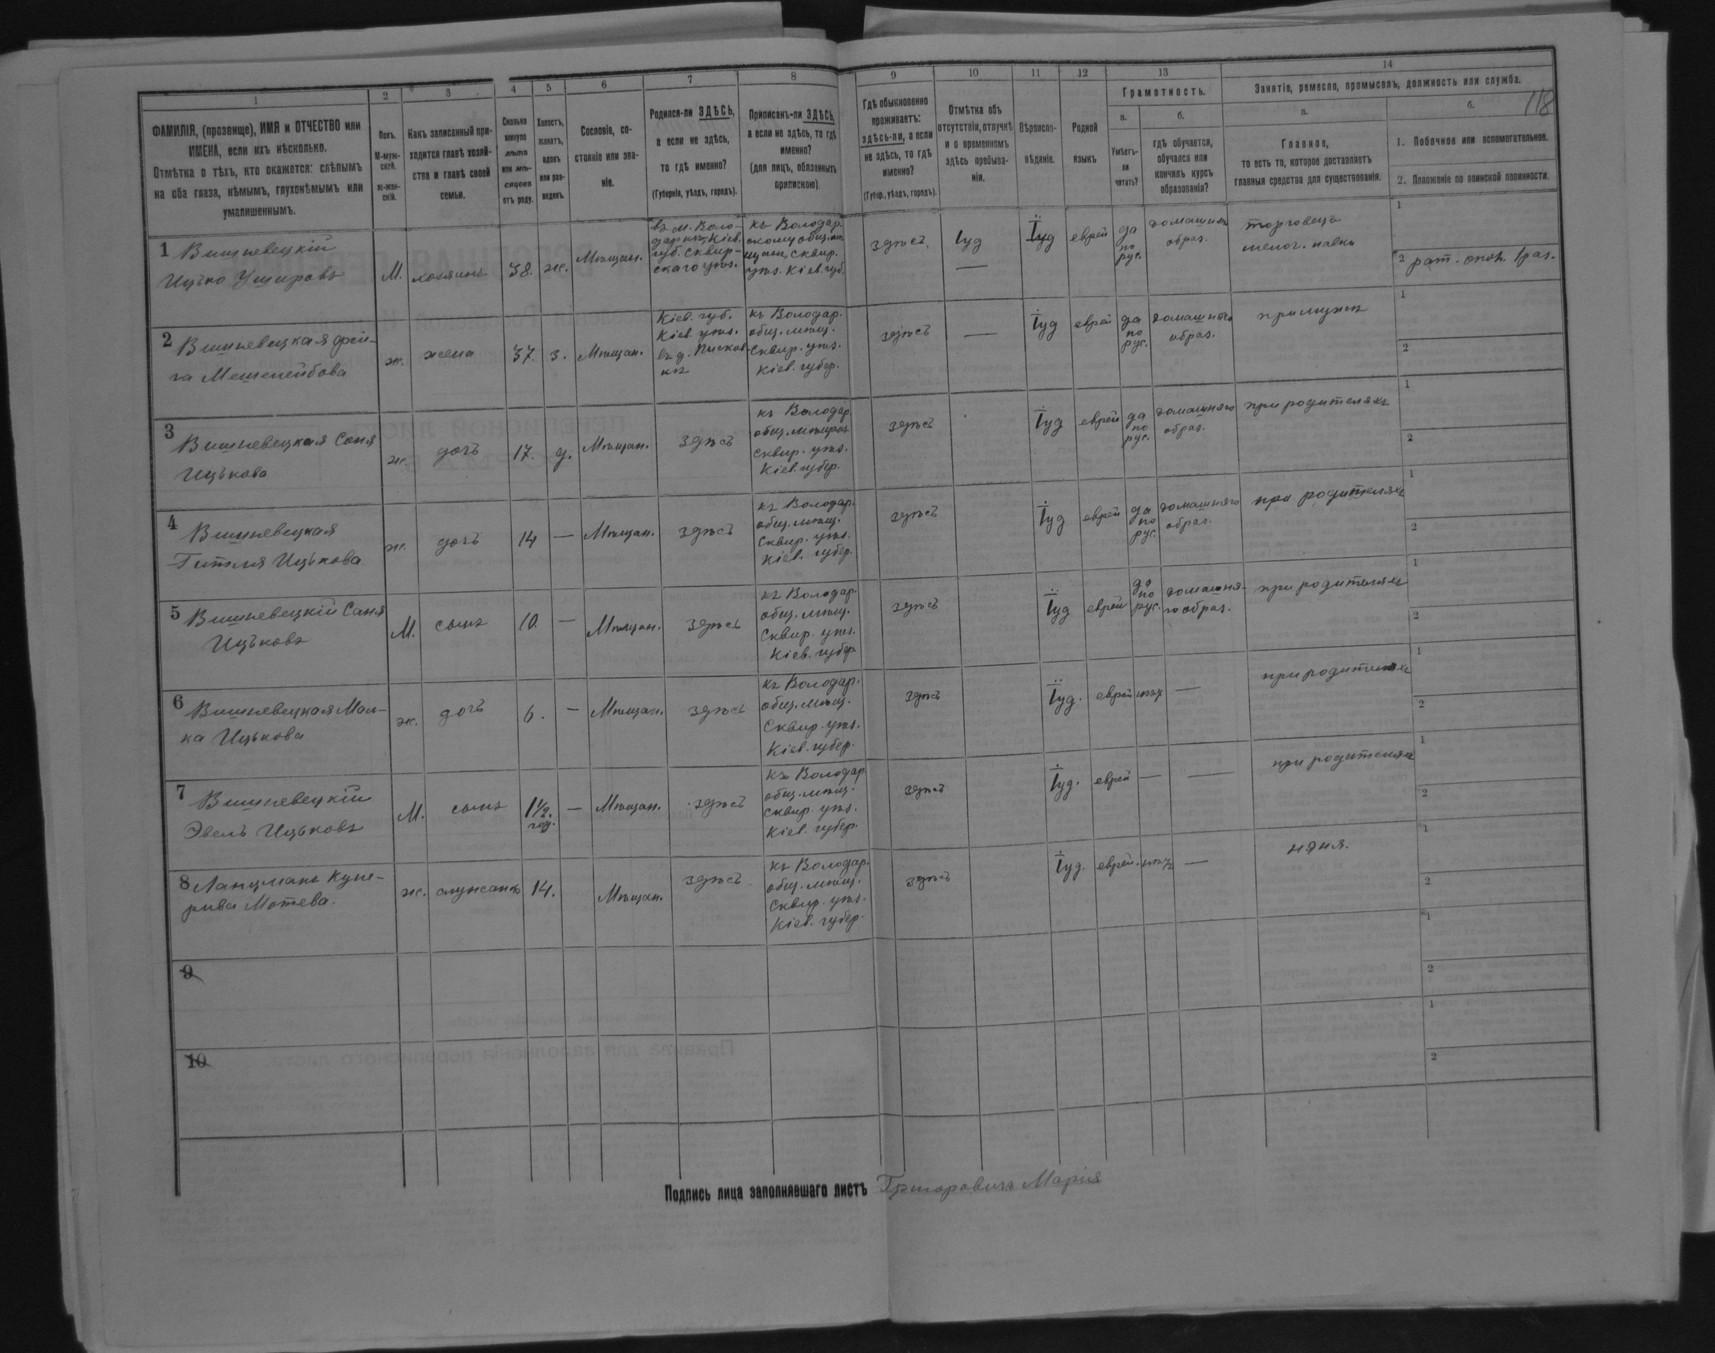 118
1 2 3 4 5 6 7 8 9 10 11 12 13 14
ФАМИЛІЯ, (прозвище), ИМЯ и ОТЧЕСТВО или
ИМЕНА, если ихъ нѣсколько.
Отмѣтка о тѣхъ, кто окажется: слѣпымъ
на оба глаза, нѣмымъ, глухонѣмымъ или
умалишеннымъ.
Полъ.
М-муж-
ской.
ж-жен-
скій.
Какъ записанный при-
ходится главѣ хозяй-
ства и главѣ своей
семьи.
Сколько
минуло
лѣтъ
или мѣ-
сяцевъ
отъ роду.
Холостъ,
женатъ,
вдовъ
или раз-
веденъ.
Сословіе, со-
стояніе или зва-
ніе.
Родился-ли ЗДѢСЬ,
а если не здѣсь,
то гдѣ именно?
(Губернія, уѣздъ, городъ).
Приписанъ-ли ЗДѢСЬ,
а если не здѣсь, то гдѣ
именно?
(для лицъ, обязанныхъ
припискою).
Гдѣ обыкновенно
проживаетъ:
здѣсь-ли, а если
не здѣсь, то гдѣ
именно?
(Губер., уѣздъ, городъ).
Отмѣтка объ
отсутствіи, отлучкѣ
и о временномъ
здѣсь пребыва-
ніи.
Вѣроиспо-
вѣданіе.
Родной
языкъ
Грамотность.
а.
Умѣетъ-
ли
читать?
б.
гдѣ обучается,
обучался или
кончилъ курсъ
образованія?
Занятіе, ремесло, промыселъ, должность или служба.
а.
Главное,
то есть то, которое доставляетъ
главныя средства для существованія.
б.
1. Побочное или вспомогательное.
2. Положеніе по воинской повинности.
1 Вишневецкій
Ицько Ушеровъ
М. хозяинъ 38. ж. Мѣщан.
въ м. Воло-
даркѣ, Кіев.
губ. Сквир-
скаго уѣз.
къ Володар.
скому общ. мѣ
щан., Сквир.
уѣз. Кіев. губ.
здѣсь.
Іуд
—
Іуд еврей да
по
рус.
домашняго
образ.
торговецъ
мелоч. лавки
1
2 рат. опол. 1 раз.
2 Вишневецкая Фрей-
га Мешелейбова
ж. жена 37. з. Мѣщан.
Кіев. губ.
Кіев. уѣз.
въ д. Писков
кѣ
къ Володар.
общ. мѣщ.
Сквир. уѣз.
Кіев. губер.
здѣсь — Іуд еврей да
по
рус.
домашняго
образ.
при мужѣ
1
2
3 Вишневецкая Соня
Ицькова
ж. дочь 17. д. Мѣщан. здѣсь
къ Володар
общ. мѣщан
Сквир. уѣз.
Кіев. губер.
здѣсь Іуд еврей да
по
рус.
домашняго
образ.
при родителяхъ
1
2
4 Вишневецкая
Гителя Ицькова
ж. дочь 14 — Мѣщан. здѣсь
къ Володар.
общ. мѣщ.
Сквир. уѣз.
Кіев. губер.
здѣсь Іуд еврей да
по
рус.
домашняго
образ.
при родителяхъ
1
2
5 Вишневецкій Саня
Ицьковъ
М. сынъ 10. — Мѣщан. здѣсь
къ Володар.
общ. мѣщ.
Сквир. уѣз.
Кіев. губер
здѣсь Іуд еврей да
по
рус.
домашня-
го образ.
при родителяхъ
1
2
6 Вишневецкая Мал-
ка Ицькова
ж. дочь 6. — Мѣщан. здѣсь
къ Володар.
общ. мѣщ.
Сквир. уѣз.
Кіев. губер.
здѣсь Іуд. еврей нѣтъ —
при родителяхъ
1
2
7 Вишневецкій
Эвель Ицьковъ
М. сынъ 1½
год.
— Мѣщан. здѣсь
къ Володар
общ. мѣщ.
Сквир. уѣз.
Кіев. губер.
здѣсь Іуд. еврей — —
при родителяхъ
1
2
8 Ланцманъ
Мотева.
ж. служанка 14. Мѣщан. здѣсь
къ Володар.
общ. мѣщ.
Сквир. уѣз.
Кіев. губер.
здѣсь Іуд. еврей. нѣтъ —
няня.
1
2
9
1
2
10
1
2
Подпись лица заполнявшаго листъ Григоровичъ Марія